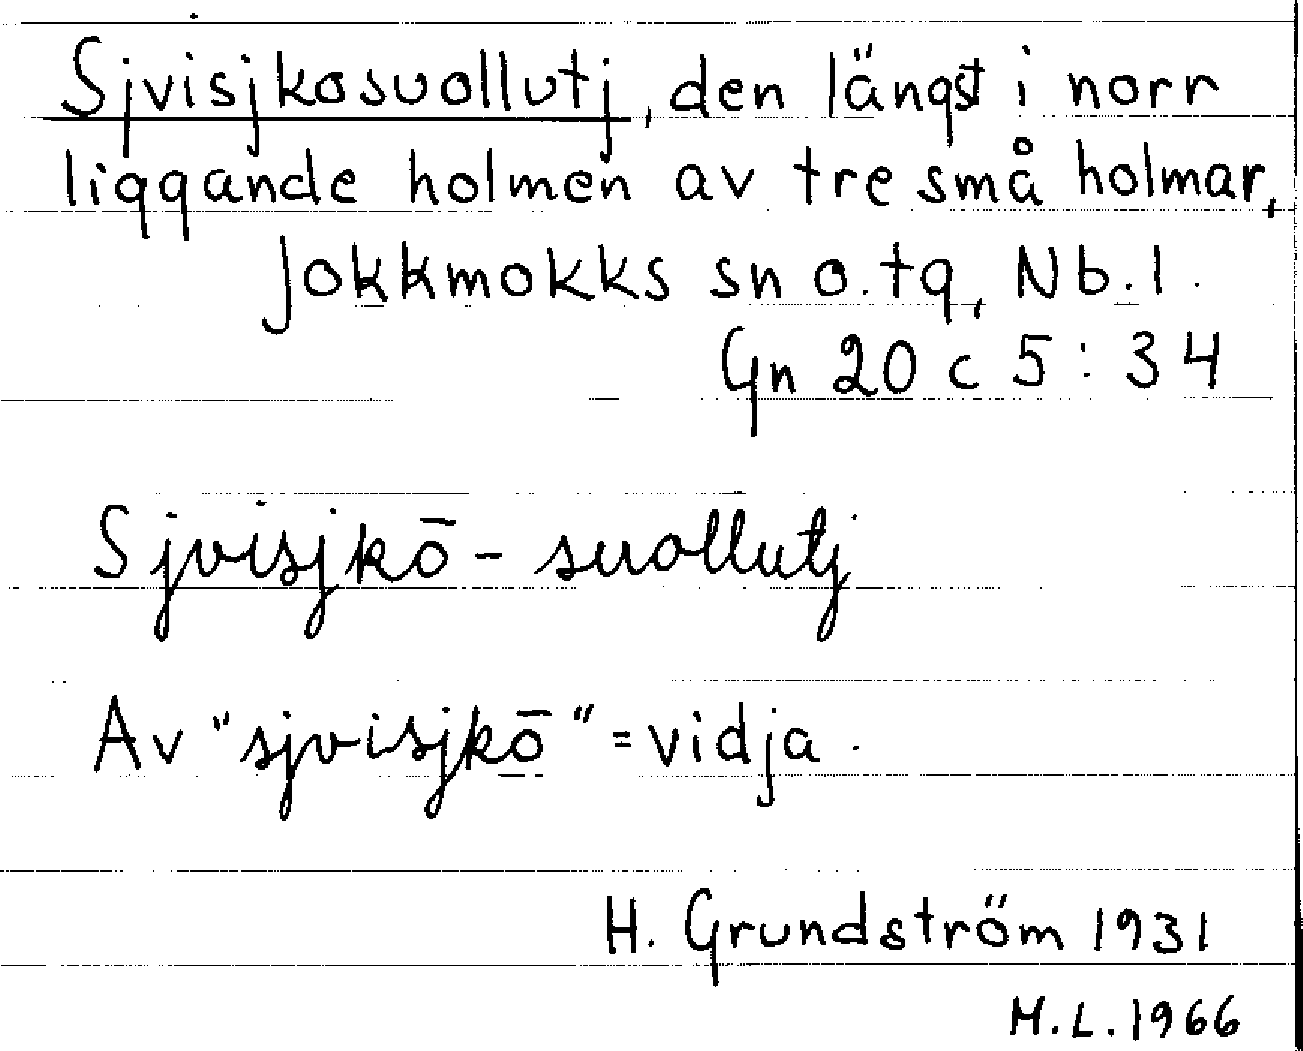 Sjvisjkosuollutj, den längst i norr
liggande holmen av tre små holmar,
Jokkmokks sn o. tg, Nb.l.
Gn 20 c 5:34
Sjvisjkō-suollutj
Av "sjvisjkō" = vidja.
H. Grundström 1931
H.L. 1966